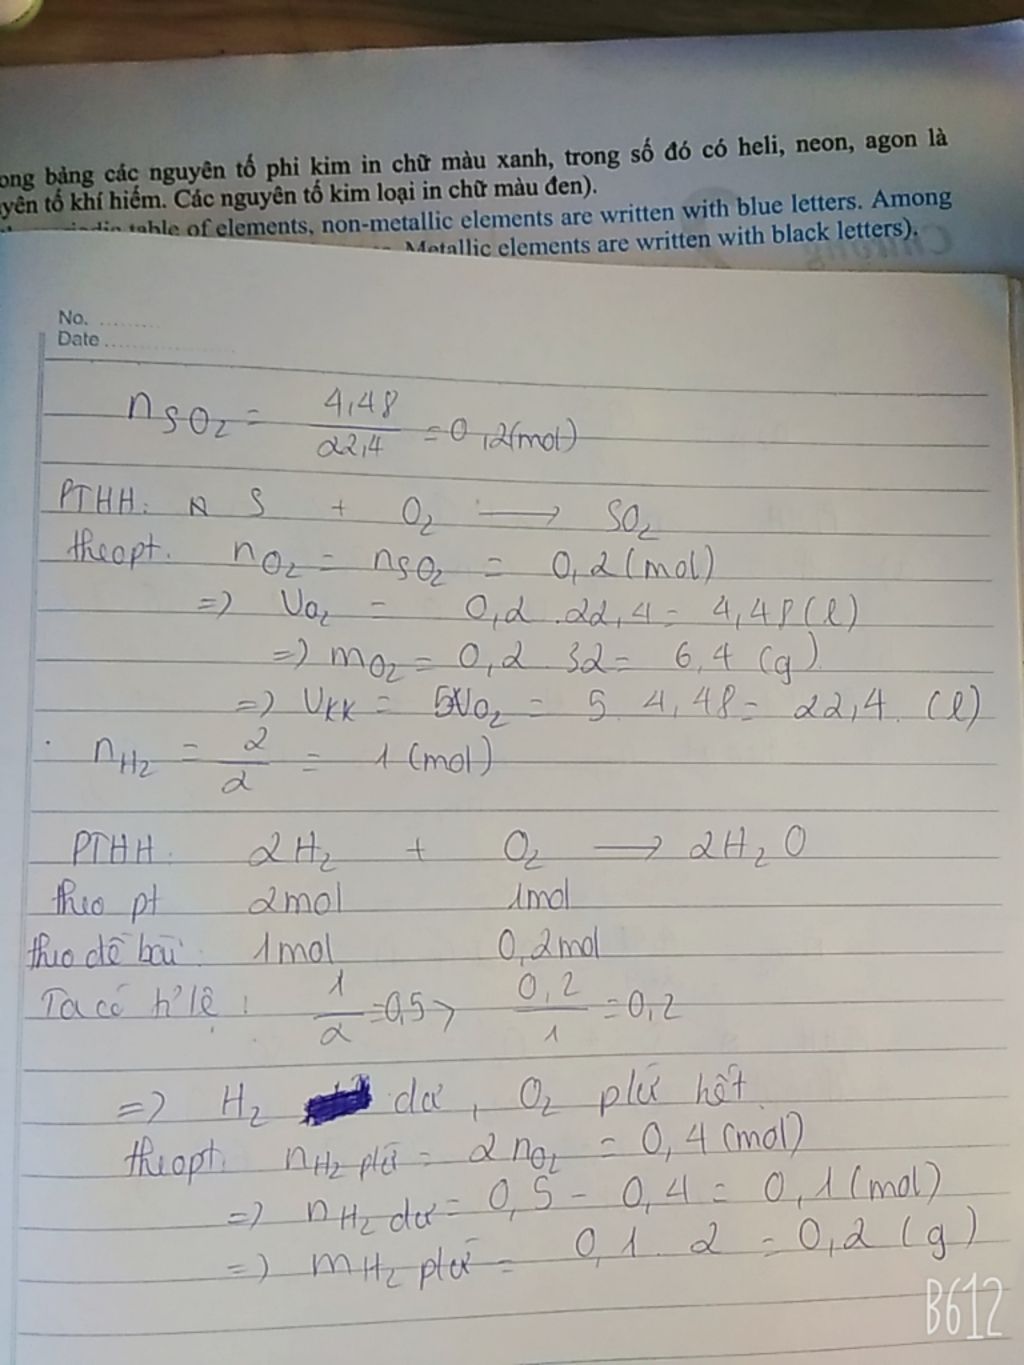 ong bảng các nguyên tố phi kim in chữ màu xanh, trong số đó có heli, neon, agon là
yên tố khí hiếm. Các nguyên tố kim loại in chữ màu đen).
table of elements, non-metallic elements are written with blue letters. Among
Metallic elements are written with black letters).
No. ..........
Date ....................
nSO2 = 4,48 / 22,4 = 0,2(mol)
PTHH: S + O2 ⟶ SO2
theo pt. nO2 = nSO2 = 0,2 (mol)
=) VO2 = 0,2 . 22,4 = 4,48 (l)
=) mO2 = 0,2 . 32 = 6,4 (g)
=) VKK = 5VO2 = 5 . 4,48 = 22,4 (l)
nH2 = 2 / 2 = 1 (mol)
PTHH: 2H2 + O2 ⟶ 2H2O
theo pt 2mol 1mol
theo đề bài: 1mol 0,2mol
Ta có tỉ lệ : 1 / 2 = 0,5 > 0,2 / 1 = 0,2
=) H2 dư, O2 pứ hết
theo pt: nH2 pứ = 2 nO2 = 0,4 (mol)
=) nH2 dư = 0,5 - 0,4 = 0,1 (mol)
=) mH2 pứ = 0,1 . 2 = 0,2 (g)
B612